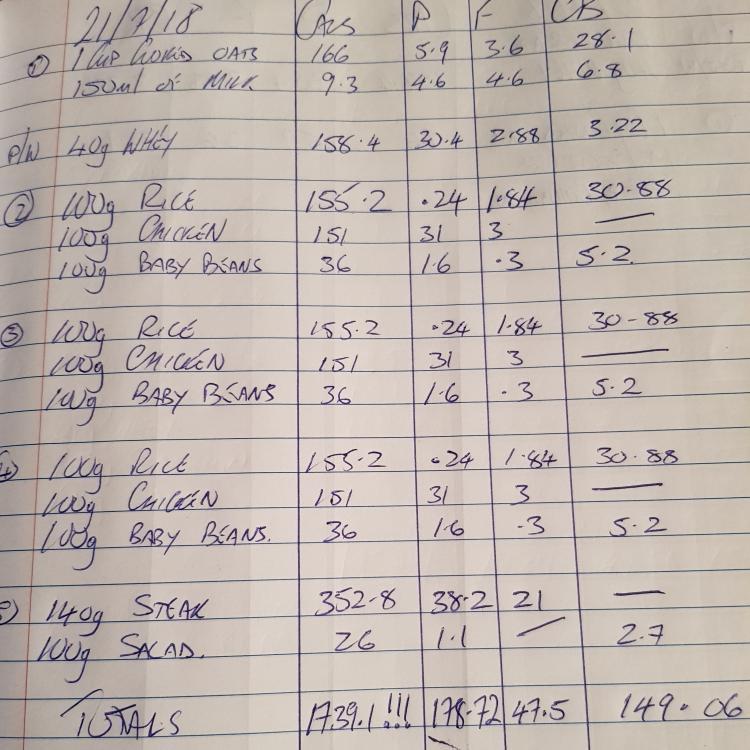 21/7/18 Cals P F CB
① 1 Cup Cooked OATS 166 5.9 3.6 28.1
150ml of MILK 9.3 4.6 4.6 6.8
P/W 40g WHEY 158.4 30.4 2.88 3.22
② 100g RICE 155.2 .24 1.84 30.88
100g CHICKEN 151 31 3 —
100g BABY BEANS 36 1.6 .3 5.2
③ 100g RICE 155.2 .24 1.84 30-88
100g CHICKEN 151 31 3 —
100g BABY BEANS 36 1.6 .3 5.2
④ 100g RICE 155.2 .24 1.84 30.88
100g CHICKEN 151 31 3 —
100g BABY BEANS. 36 1.6 .3 5.2
⑤ 140g STEAK 352.8 38.2 21 —
100g SALAD. 26 1.1 — 2.7
TOTALS 1739.1!!! 178.72 47.5 149.06